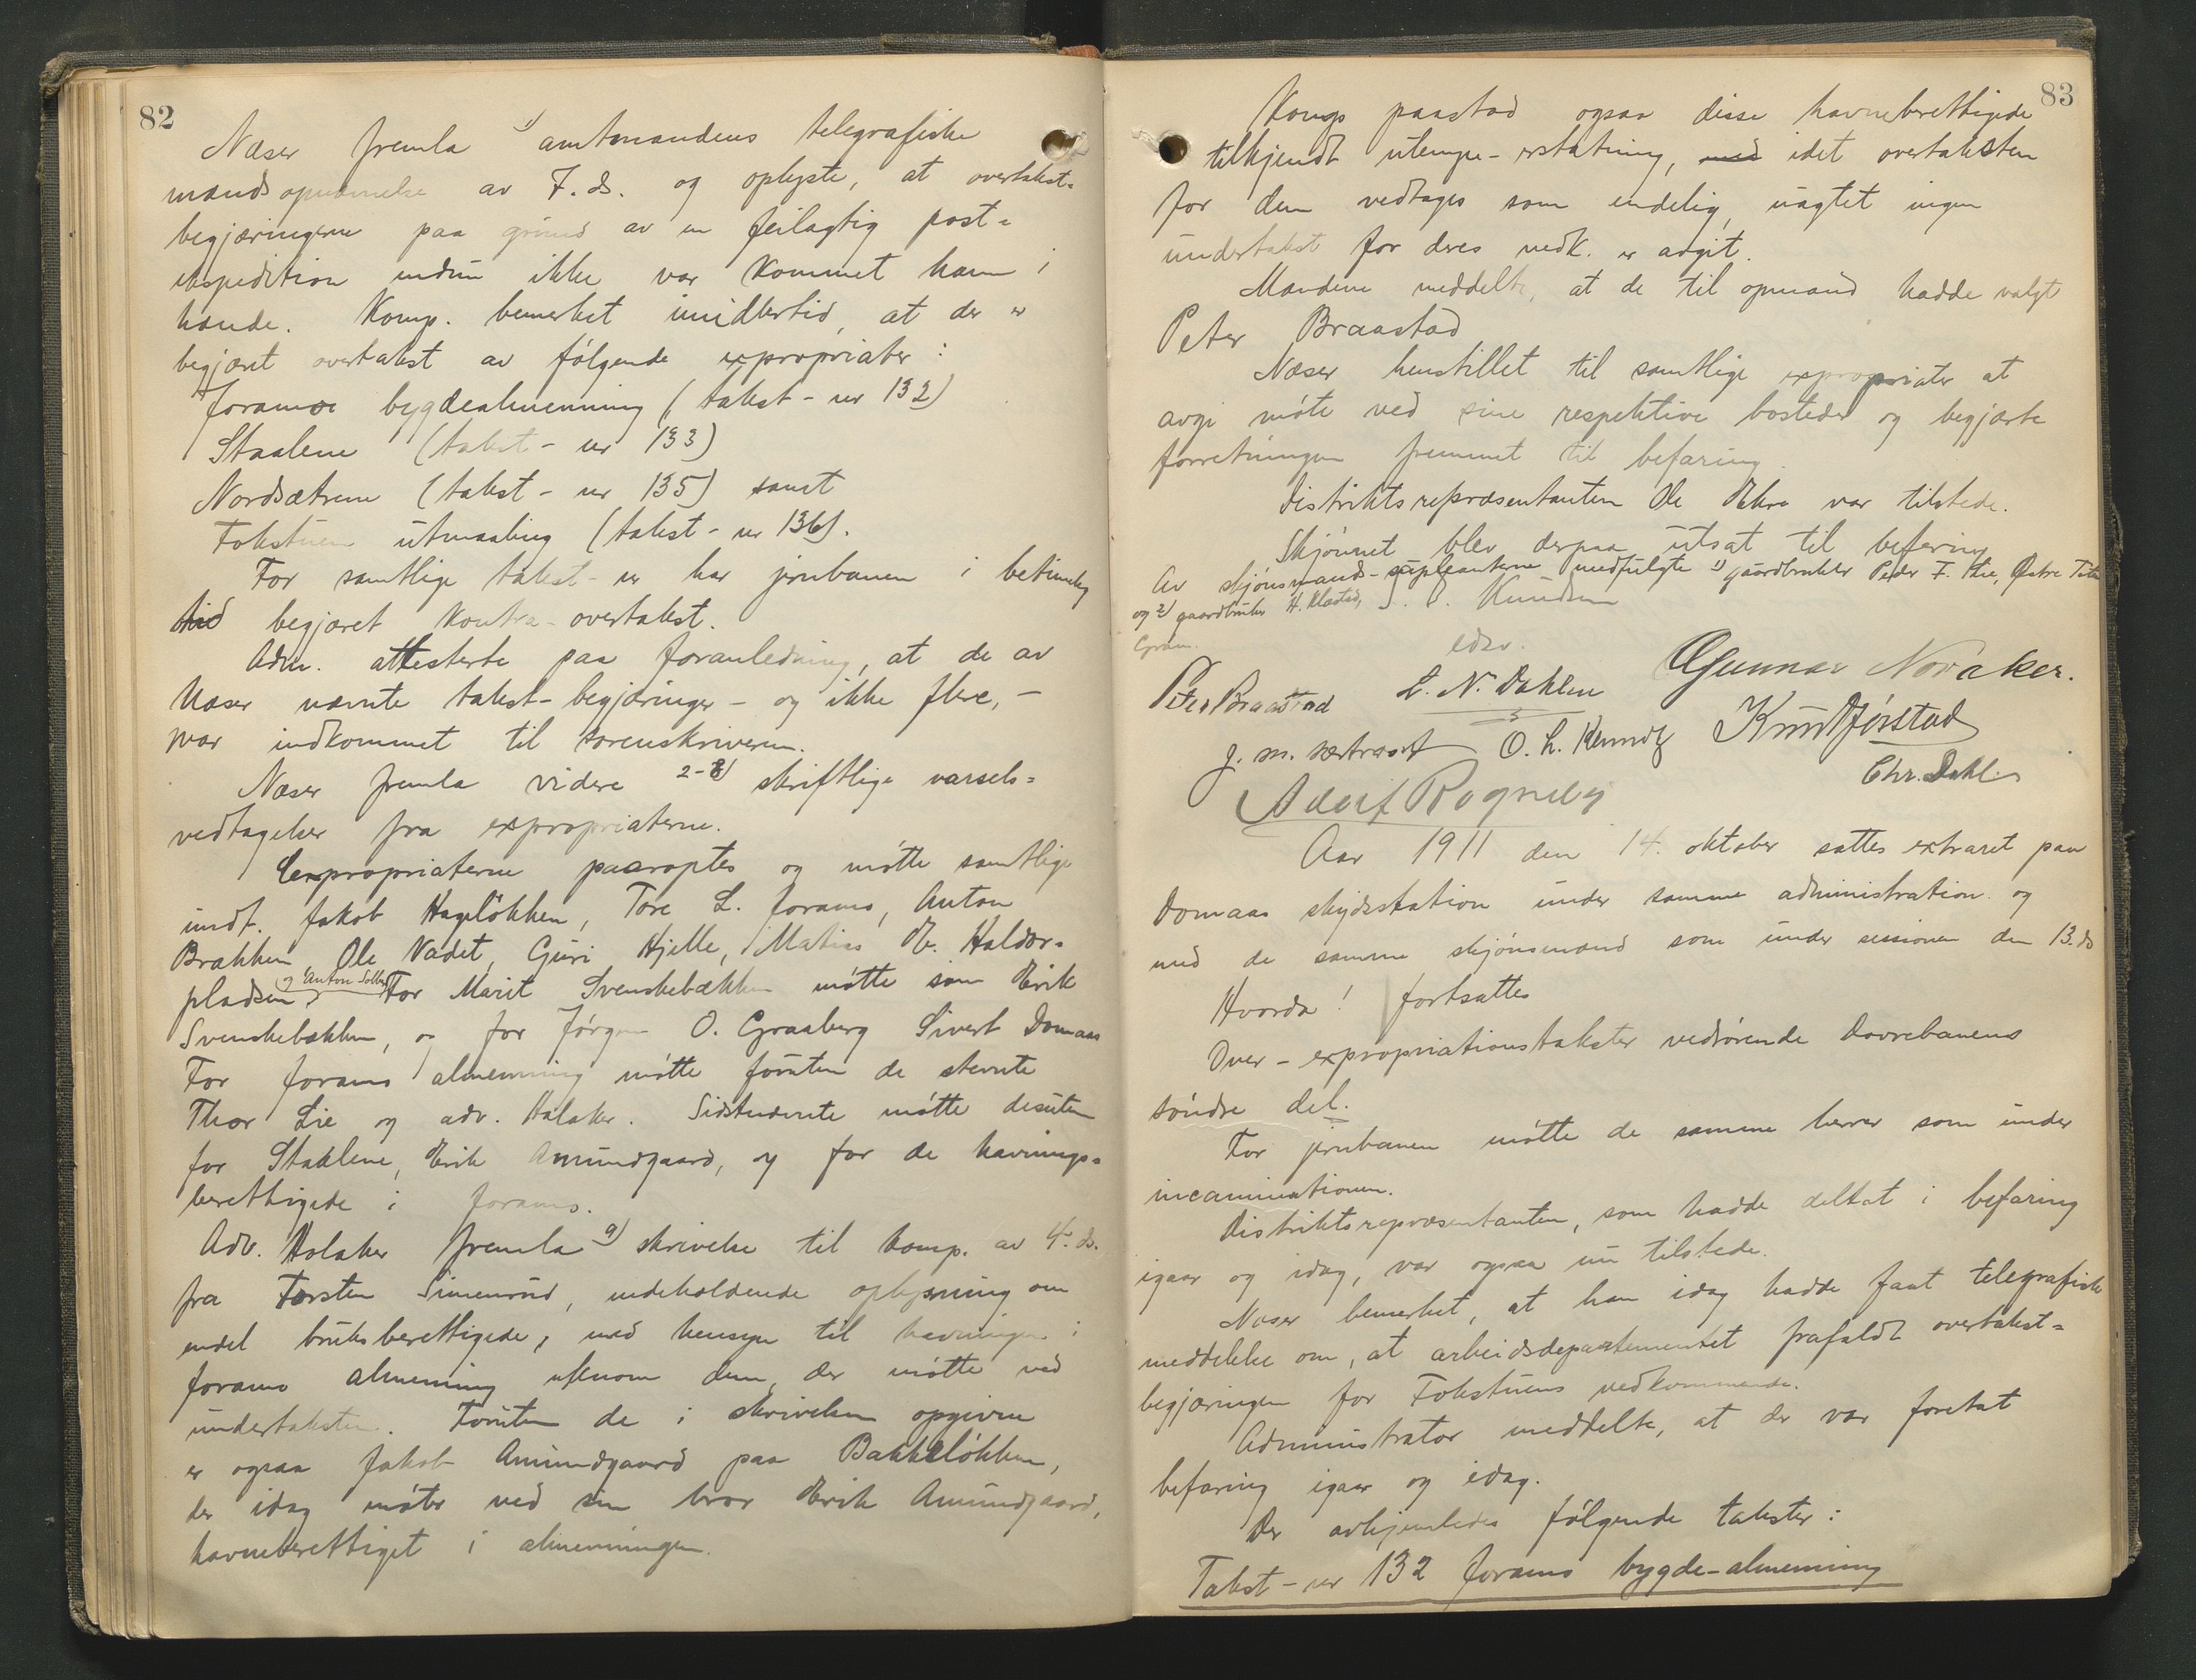 82
Næser fremla 1) amtmandens telegrafiske
mandsopnævnelse av F. ds. og oplyste, at overtakst-
begjæringerne paa grund av en feilagtig post-
ekspedition endnu ikke var kommet ham i
hænde. Komp. bemerket imidlertid, at der er
begjæret overtakst av følgende expropriater:
Joramo bygdealmenning (takst-nr 132)
Staalene (takst-nr 133)
Nordsætrene (takst-nr 135) samt
Fokstuen utmaaling (takst-nr 136).
For samtlige takst-nr har jernbanen i betimelig
tid begjæret kontra-overtakst.
Adm. attesterte paa foranledning, at de av
Næser nævnte takst-begjæringer - og ikke flere, -
var indkommet til sorenskriveren.
Næser fremla videre 2-8) skriftlige varsels-
vedtagelser fra expropriaterne.
Expropriaterne paaroptes og møtte samtlige
undt. Jakob Hageløkken, Tore L. Joramo, Anton
Brækken, Ole Nadet, Guri Hjelle, Matias E. Haldor-
pladsen og Anton Solberg. For Marit Svenskebækken møtte søn Erik
Svenskebækken, og for Jørgen O. Graaberg Sivert Domaas
For Joramo almenning møtte foruten de stevnte
Thor Lie og adv. Holaker. Sidstnævnte møtte desuten
for Staalene, Erik Amundgaard, og for de havnings-
berettigede i Joramo.
Adv. Holaker fremla 9) skrivelse til komp. av 4. ds.
fra Torsten Simenrud, indeholdende oplysning om
endel bruksberettigede, med hensyn til havningen i
Joramo almenning utenom dem, der møtte ved
undertaksten. Foruten de i skrivelsen opgivne
er ogsaa Jakob Amundgaard paa Bakkeløkken,
der idag møter ved sin bror Erik Amundgaard,
havneberettiget i almenningen.
83
Komp. paastod ogsaa disse havneberettigede
tilkjendt ulempe-erstatning, med idet overtaksten
for dem vedtages som endelig, uagtet ingen
undertakst for deres vedk. er avgit.
Mændene meddelte, at de til opmand hadde valgt
Peter Braastad
Næser henstillet til samtlige expropriater at
avgi møte ved sine respektive bosteder og begjærte
forretningen fremmet til befaring.
Distriktsrepræsentanten Ole Ekre var tilstede.
Skjønnet blev derpaa utsat til befaring
Av skjønsmands-supleanterne medfulgte 1) gaardbruker Peder F. Lie, Østre Toten
og 2) gaardbruker H. Klæstad,
Gran.
J. P. Knudsen
edsv.
Peter Braastad L. N. Dahlen Gunnar Noraker.
J. M. O. L. Kemnitz Knut Jørstad
Chr. Dahl
Adolf Rogneby
Aar 1911 den 14. oktober sattes extraret paa
Domaas skydsstation under samme administration og
med de samme skjønsmænd som under sessionen den 13. ds
Hvorda! fortsattes
Over-expropriationstakster vedrørende Dovrebanens
søndre del.
For jernbanen møtte de samme herrer som under
incaminationen.
Distriktsrepræsentanten, som hadde deltat i befaring
igaar og idag, var ogsaa nu tilstede.
Næser bemerket, at han idag hadde faat telegrafisk
meddelelse om, at arbeidsdepartementet frafaldt overtakst-
begjæringen for Fokstuens vedkommende.
Administrator meddelte, at der var foretat
befaring igaar og idag.
Der avhjemledes følgende takster:
Takst-nr 132 Joramo bygde-almenning